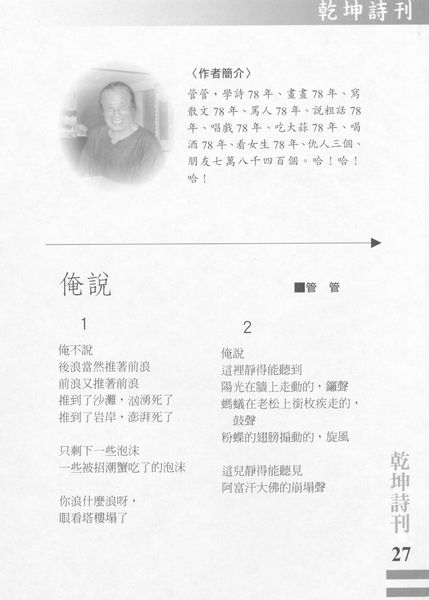 乾坤詩刊
〈作者簡介〉
管管，學詩78年、畫畫78年、寫
散文78年、罵人78年、說粗話78
年、唱戲78年、吃大蒜78年、喝
酒78年、看女生78年、仇人三個、
朋友七萬八千四百個。哈！哈！
哈！
俺說
■管 管
1
俺不說
後浪當然推著前浪
前浪又推著前浪
推到了沙灘，洶湧死了
推到了岩岸，澎湃死了
只剩下一些泡沫
一些被招潮蟹吃了的泡沫
你浪什麼浪呀，
眼看塔樓塌了
2
俺說
這裡靜得能聽到
陽光在牆上走動的，鑼聲
螞蟻在老松上銜枚疾走的，
鼓聲
粉蝶的翅膀搧動的，旋風
這兒靜得能聽見
阿富汗大佛的崩塌聲
乾坤詩刊
27